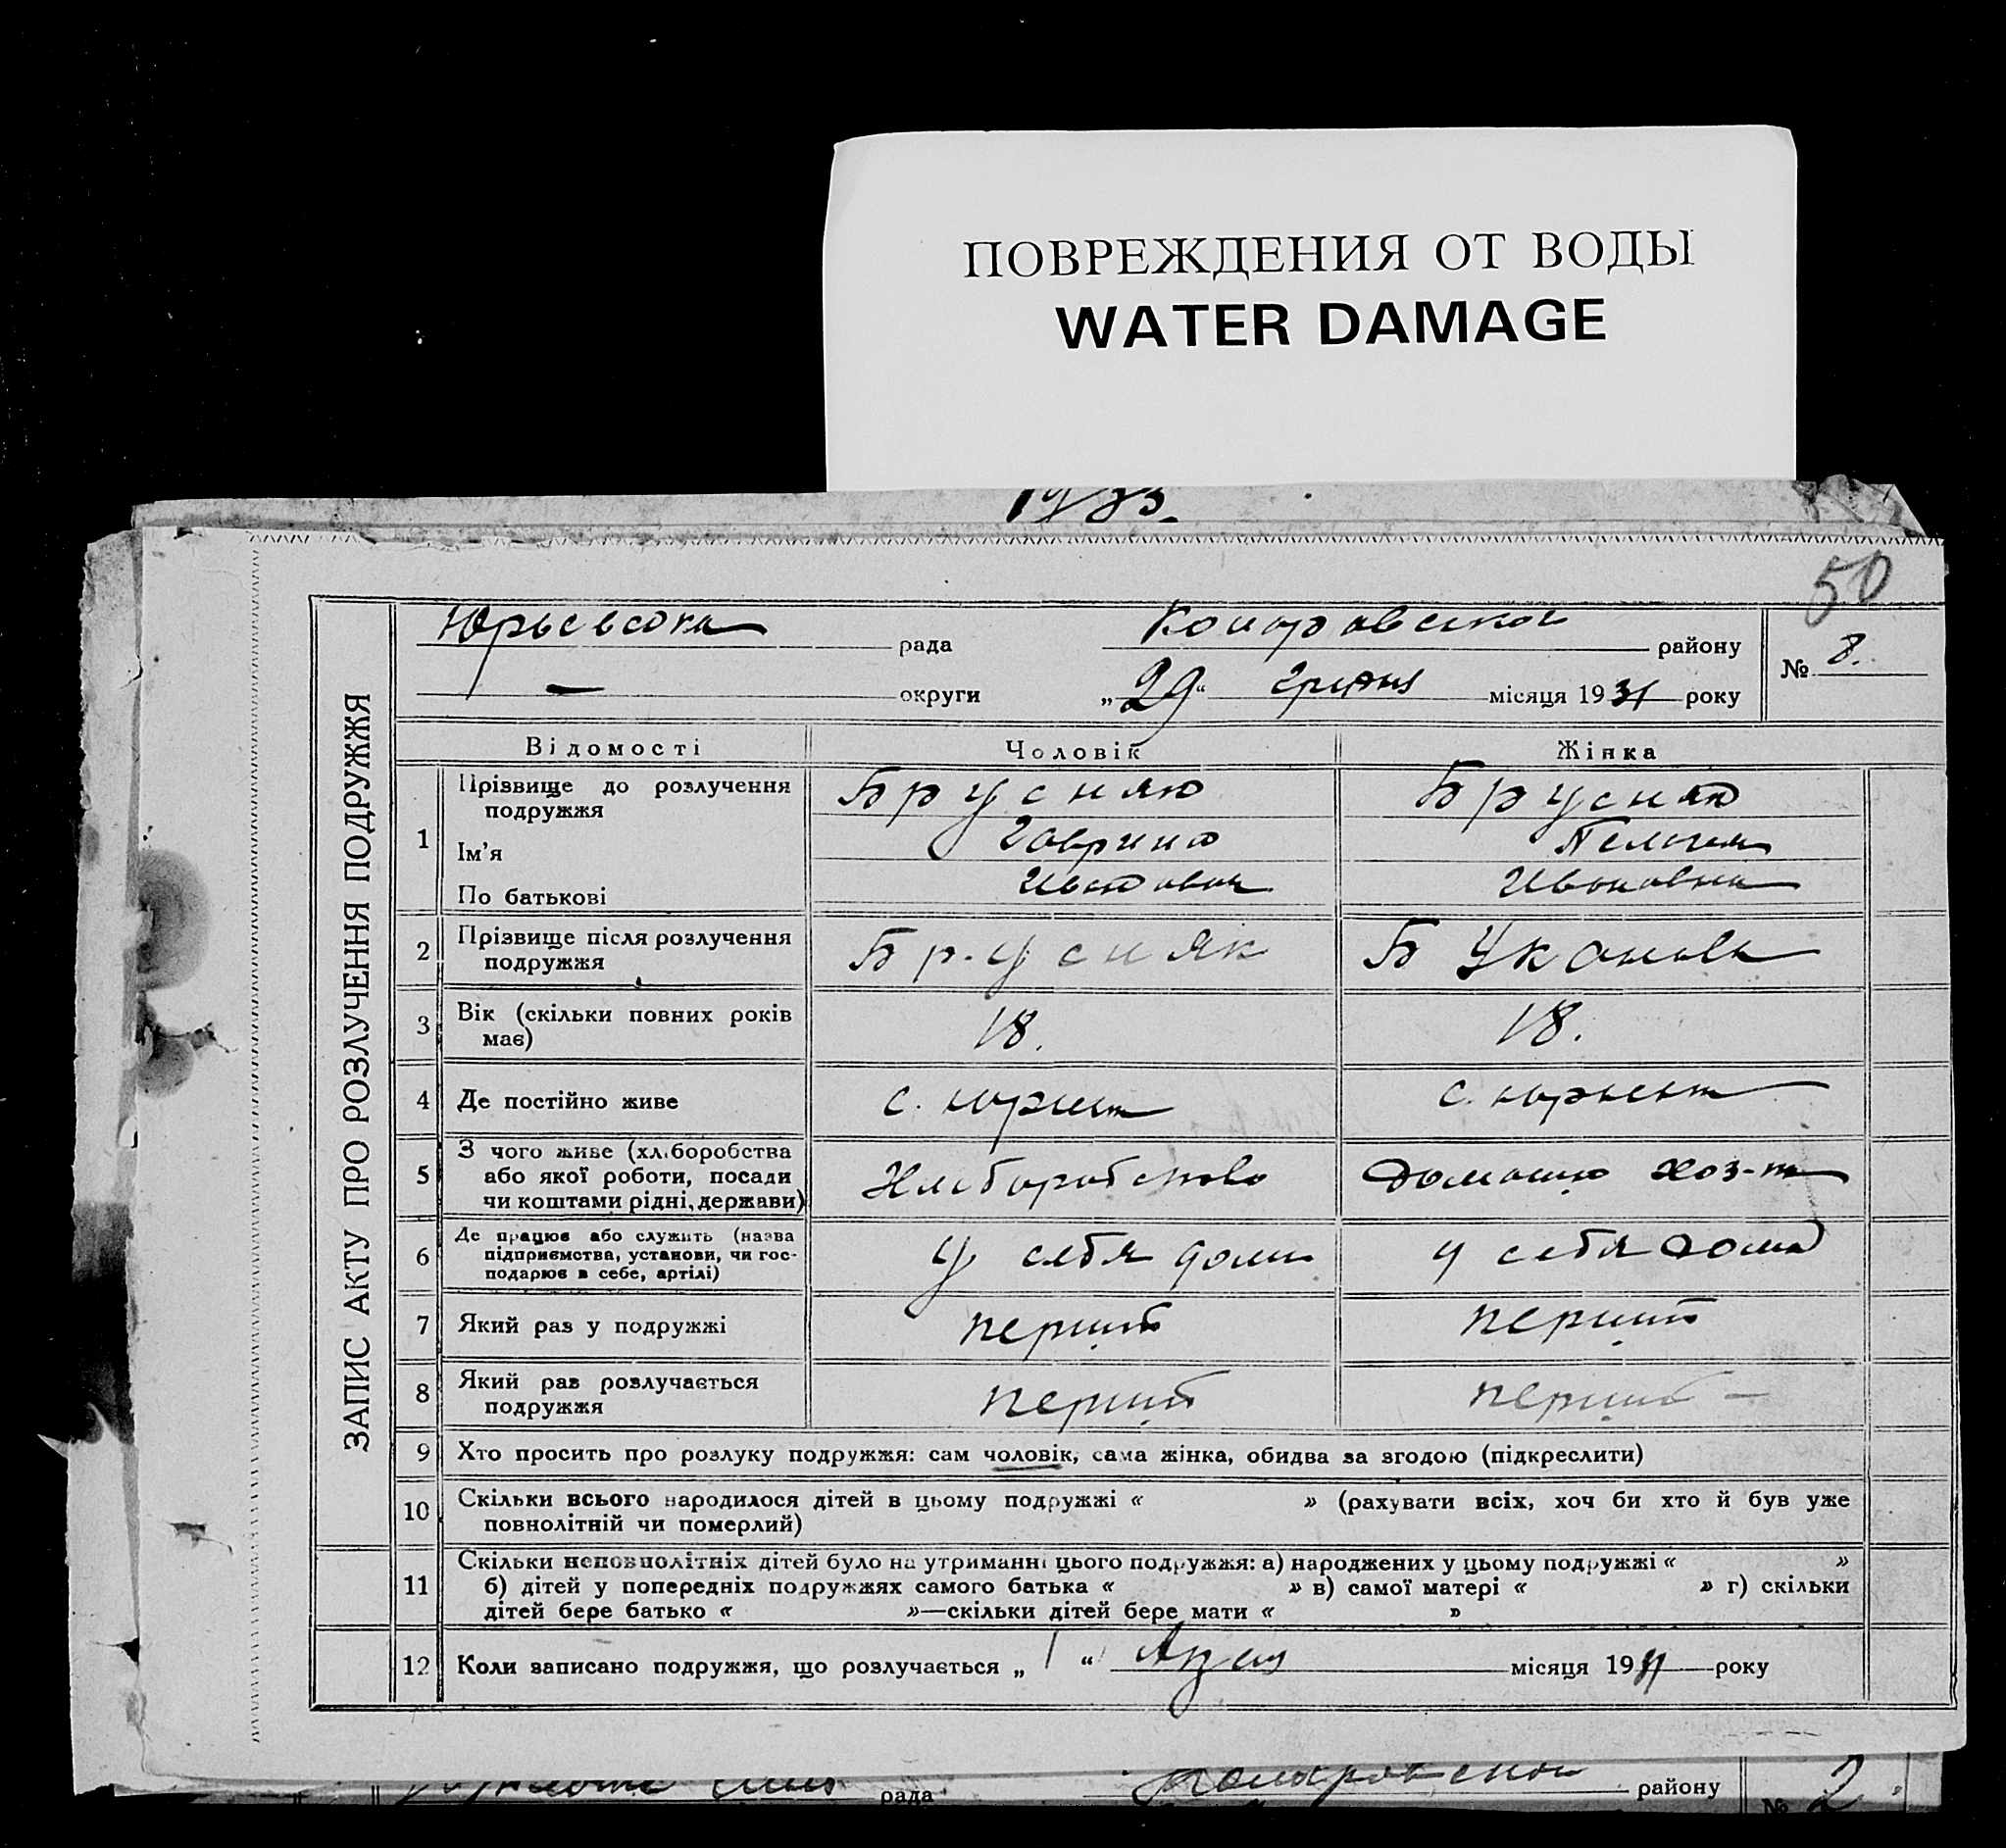 ПОВРЕЖДЕНИЯ ОТ ВОДЫ
WATER DAMAGE
1933.
50
ЗАПИС АКТУ ПРО РОЗЛУЧЕННЯ ПОДРУЖЖЯ
Юрьевська рада района району № 8.
— округи „29“ місяця 1931 року
Відомості Чоловік Жінка
1 Прізвище до розлучення подружжя Брусняк Брусняк
Ім'я Гаврило Пелагея
По батькові Ивановна
2 Прізвище після розлучення подружжя Брусняк
3 Вік (скільки повних років має) 18. 18.
4 Де постійно живе с. с.
5 З чого живе (хліборобства або якої роботи, посади чи коштами рідні, держави) Хлеборобство хоз-
6 Де працює або служить (назва підприємства, установи, чи господарює в себе, артілі) У себя дома у себя дома
7 Який раз у подружжі перший перший
8 Який раз розлучається подружжя перший перший —
9 Хто просить про розлуку подружжя: сам чоловік, сама жінка, обидва за згодою (підкреслити)
10 Скільки всього народилося дітей в цьому подружжі « » (рахувати всіх, хоч би хто й був уже
повнолітній чи померлий)
11 Скільки неповнолітніх дітей було на утриманні цього подружжя: а) народжених у цьому подружжі « »
б) дітей у попередніх подружжях самого батька « » в) самої матері « » г) скільки
дітей бере батько « »—скільки дітей бере мати « »
12 Коли записано подружжя, що розлучається „ 1 “ місяця 1931 року
рада району № 2